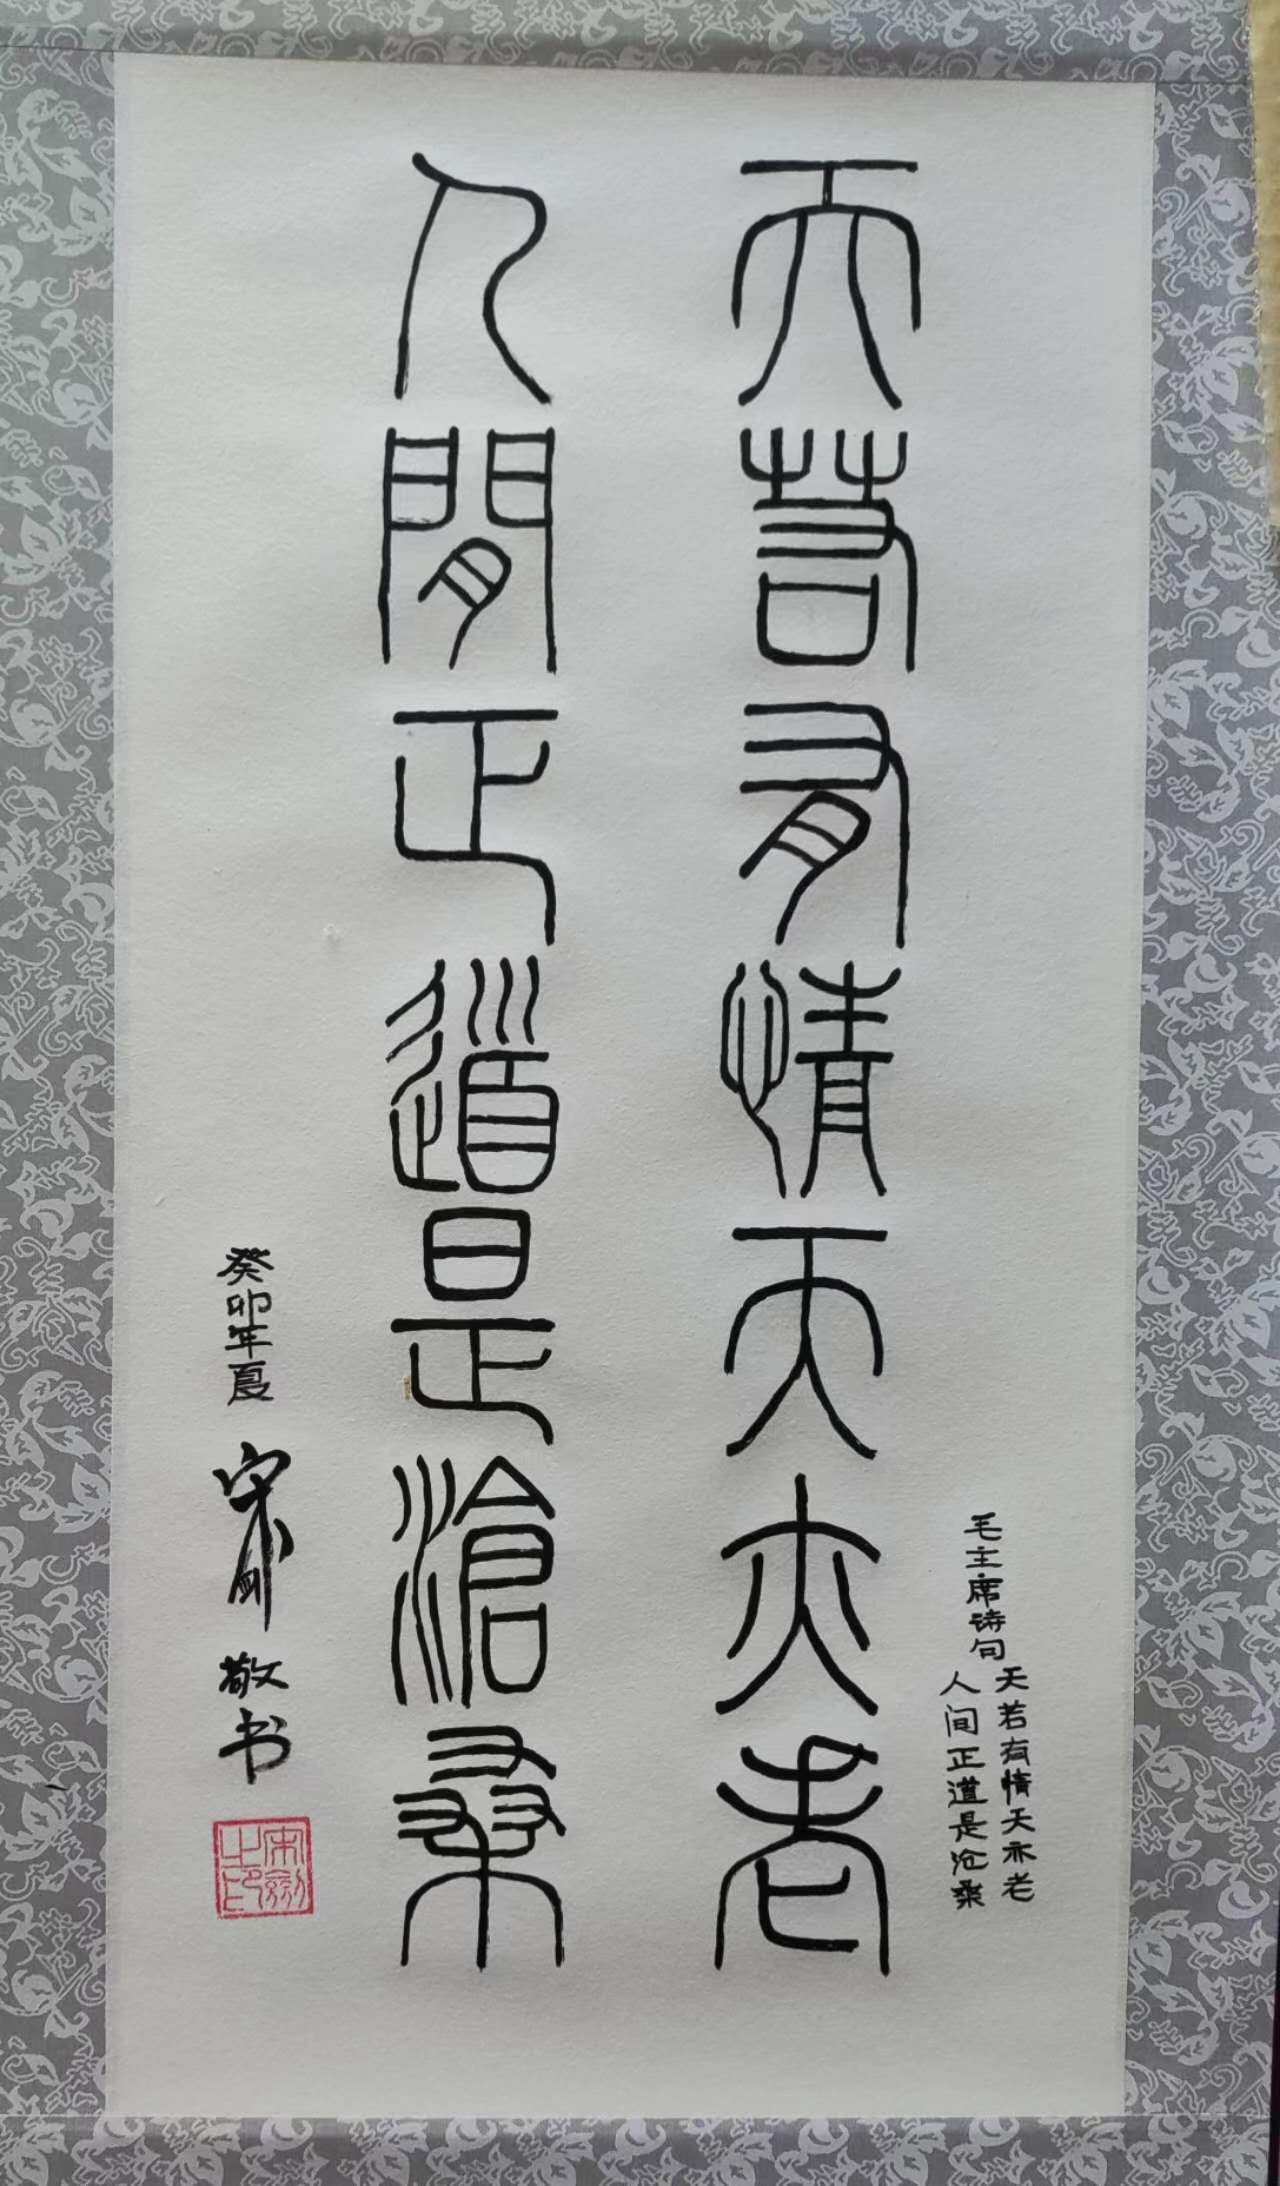 天若有情天亦老
人間正道是滄桑
毛主席诗句
天若有情天亦老
人间正道是沧桑
癸卯年夏
敬书